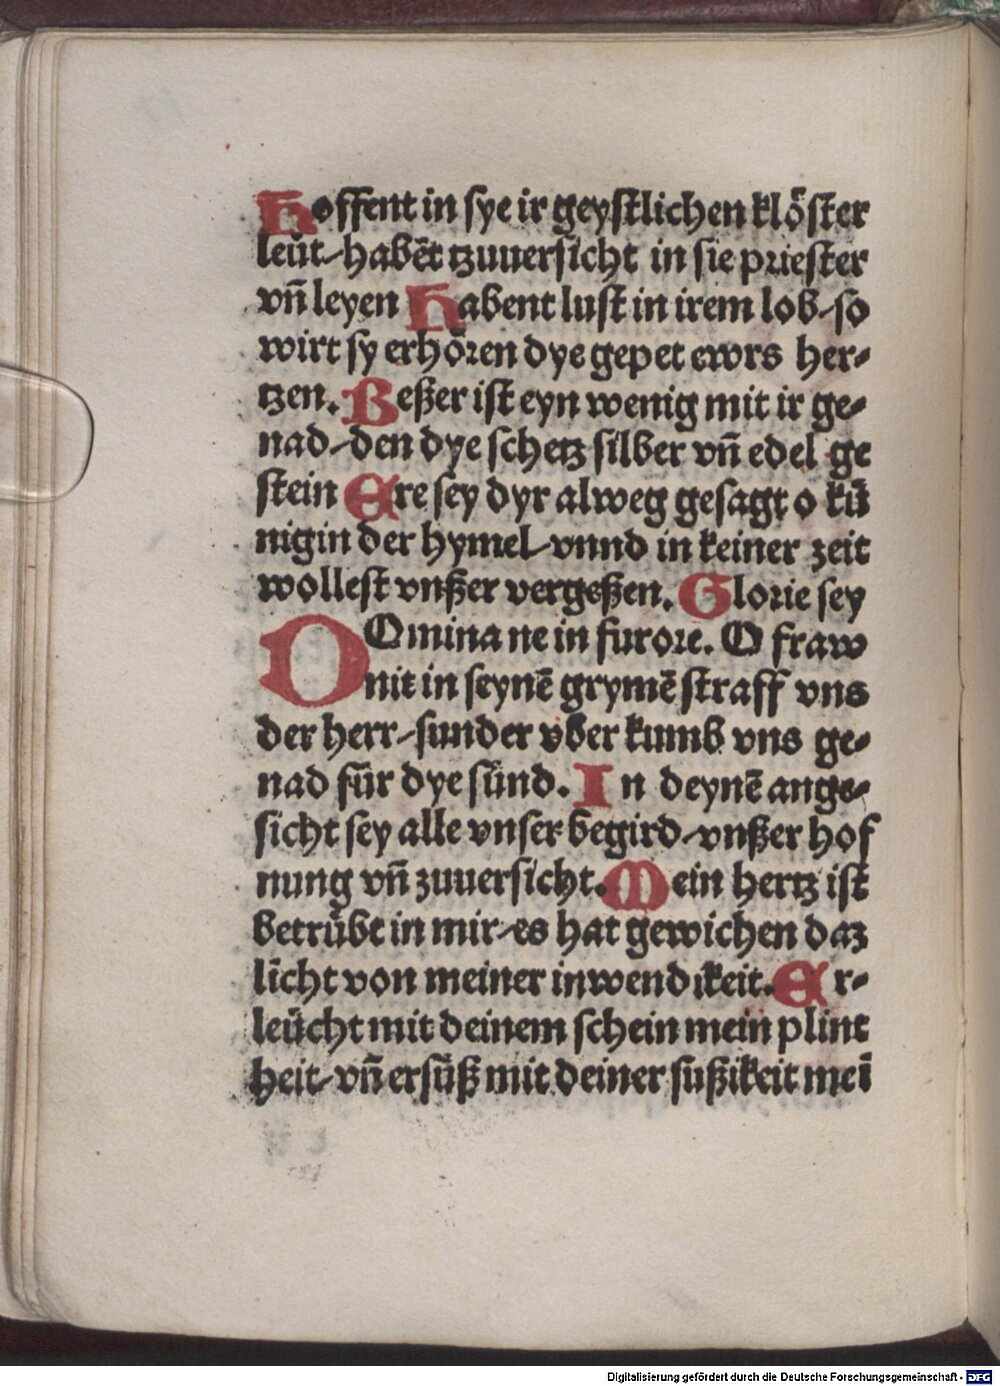 Hoffent in sye ir geystlichen klöster
leüt-habēt tzuuersicht in sie priester
vn̄ leyen Habent lust in irem lob-so
wirt sy erhören dye gepet ewrs her-
tzen. Beßer ist eyn wenig mit ir ge-
nad-den dye schetz silber vn̄ edel ge
stein Ere sey dyr alweg gesagt o kü
nigin der hymel-vnnd in keiner zeit
wollest vnßer vergeßen. Glorie sey
OOmina ne in furore. O fraw
nit in seynē grymē straff vns
der herr-sunder vber kumb vns ge-
nad für dye sünd. In deynē ange-
sicht sey alle vnser begird-vnßer hof
nung vn̄ zuuersicht. Mein hertz ist
betrübt in mir-es hat gewichen daz
licht von meiner inwendikeit. Er-
leücht mit deinem schein mein plint
heit-vn̄ ersüß mit deiner sußikeit mei
Digitalisierung gefördert durch die Deutsche Forschungsgemeinschaft - DFG